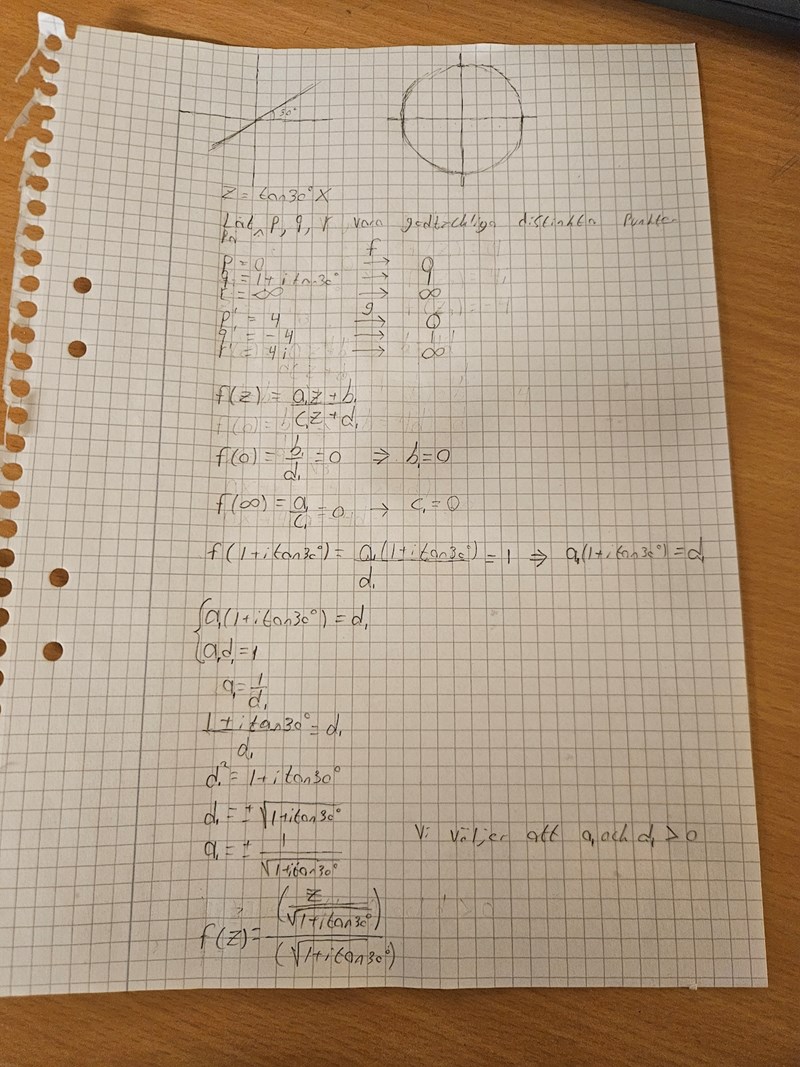 30°
z = tan30° x
Låt p, q, r vara godtyckliga distinkta punkter
på
f
p = 0 → 0
q = 1+i tan30° → 1
r = ∞ → ∞
g
p' = 4 → 0
q' = -4 → 1
r' = 4i → ∞
f(z) = (a₁z + b₁)/(c₁z + d₁)
f(0) = b₁/d₁ = 0 ⇒ b₁ = 0
f(∞) = a₁/c₁ = ∞ → c₁ = 0
f(1+i tan30°) = a₁(1+i tan30°)/d₁ = 1 ⇒ a₁(1+i tan30°) = d₁
{a₁(1+i tan30°) = d₁
a₁d₁ = 1
a₁ = 1/d₁
(1+i tan30°)/d₁ = d₁
d₁² = 1+i tan30°
d₁ = ±√(1+i tan30°) Vi väljer att a₁ och d₁ > 0
a₁ = ± 1/√(1+i tan30°)
f(z) = (z/√(1+i tan30°))/(√(1+i tan30°))